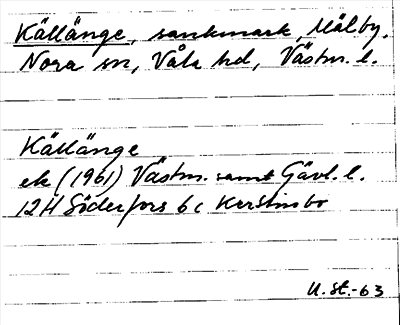 Källänge, sankmark, Målby,
Nora sn, Våla hd, Västm. l.
Källänge
ek (1961) Västm. samt Gävl. l.
12H Söderfors 6c Kerstinsbo
U. St.-63